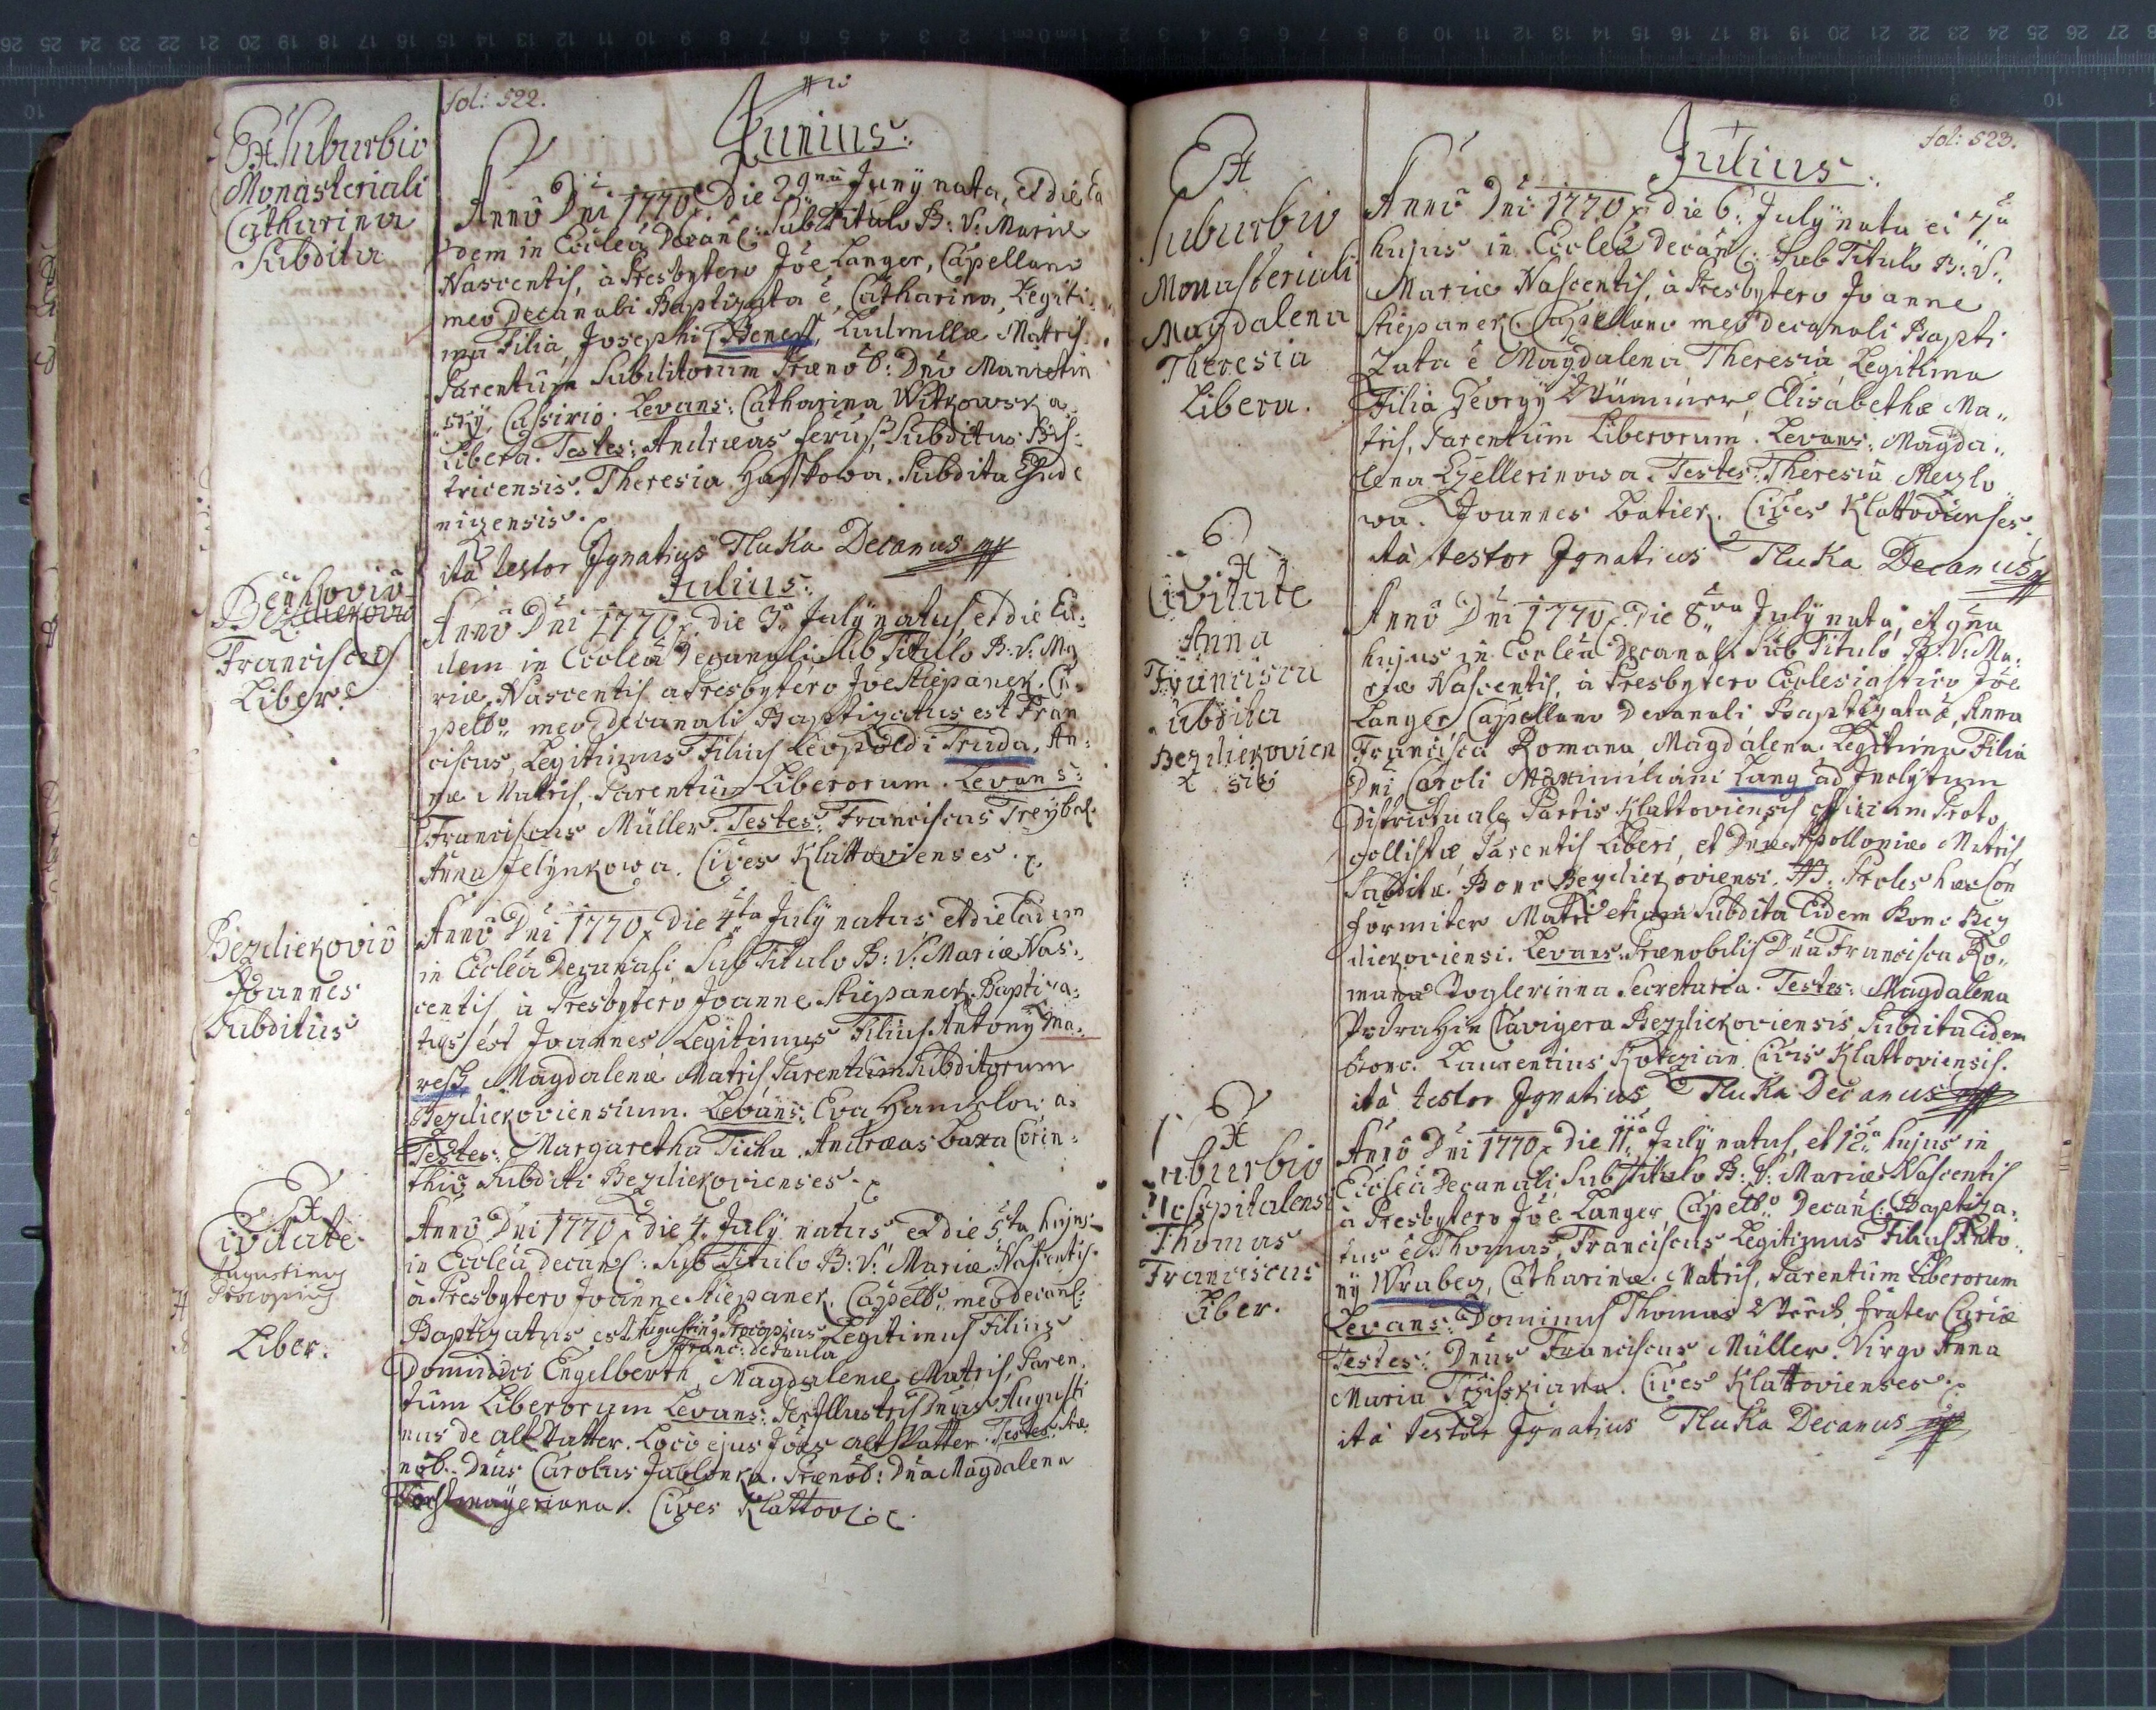 fol: 522.
Junius.
Ex Suburbio
Monasteriali
Catharina
Subdita
Anno Dni 1770 die 29na Juny nata, et die Ea
dem in Ecclea Decanli: Sub Titulo B: V: Mariæ
Nascentis, à Presbytero Joe Langer, Capellano
meo Decanali Baptizata e, Catharina, Legiti:
ma Filia, Josephi Beness, Ludmillæ Matris
Parentum Subditorum Præno b: Dno Manietin
sky, Cassirio. Levans: Catharina Witkowska
Libera. Testes: Andræas Ferus Subditus Bis:
tricensis. Theresia Hasskowa, Subdita Chude
nizensis.
ita testor Ignatius Tluka Decanus
Julius.
Benhovio
Bezdiekovio
Franciscus
Liber
Anno Dni 1770 die 3a July natus, et die Ea:
dem in Ecclea Decanali Sub Titulo B: V: Ma
riæ Nascentis a Presbytero Joe Stiepanek, Ca
pello meo Decanali Baptizatus est Fran
ciscus, Legitimus Filius Leopoldi Truda, An:
næ Matris, Parentum Liberorum. Levans:
Franciscus Müller. Testes: Franciscus Treybal
Anna Jelynkowa. Cives Klattovienses.
Bezdiekovio
Joannes
Subditus
Anno Dni 1770 die 4ta July natus, et die Eadem
in Ecclea Decanali Sub Titulo B: V: Mariæ Nas:
centis, à Presbytero Joanne Stiepanek Baptiza:
tus est Joannes Legitimus Filius Antony Ma:
resh Magdalenæ Matris Parentum Subditorum
Bezdiekoviensium. Levans: Eva Handlowa.
Testes: Margaretha Ticha. Andræas Baxa Corin:
thio Subditi Bezdiekovienses.
Ex
Civitate
Augustinus
Procopius
Liber.
Anno Dni 1770 die 4 July natus et die 5ta hujus
in Ecclea decanl: Sub Titulo B: V: Mariæ Nascentis
à Presbytero Joanne Stiepanek, Capello meo decanl:
Baptizatus est Augustinus Procopius Legitimus Filius
Franc: de Paula
Dominici Engelberth, Magdalenæ Matris, Paren
tum Liberorum Levans: Perillustris Dnus Augusti
nus de Altvatter. Loco ejus Joes Altvatter. Testes: Præ
nob: Dnus Carolus Jablonka. Prænob: Dna Magdalena
Forstmayeriana. Cives Klattov:
fol: 523.
Julius
Ex
Suburbio
Monasteriali
Magdalena
Theresia
Libera.
Anno Dni 1770 die 6: July nata et 7a
hujus in Ecclea decanl: Sub Titulo B: V:
Mariæ Nascentis, à Presbytero Joanne
Stiepanek Capellano meo decanali Bapti
zata e Magdalena Theresia Legitima
Filia Georgy Wümmer, Elisabethæ Ma,,
tris, Parentum Liberorum. Levans: Magda,,
lena Kellerinowa. Testes: Theresia Meyzlo
wa. Joannes Batiek. Cives Klattovienses.
ita testor Ignatius Tluka Decanus
Ex
Civitate
Anna
Francisca
Subdita
Bezdiekovien
sis
Anno Dni 1770 Die 8va July nata, et 9na
hujus in Ecclea Decanali Sub Titulo B: V: Ma:
riæ Nascentis, à Presbytero Ecclesiastico Joe
Langer Capellano Decanali Baptizata e, Anna
Francisca Romana Magdalena. Legitima Filia
Dni Caroli Maximiliani Lang ad Inclytum
Districtuale Partis Klattoviensis officium Proto
collistæ, Parentis Liberi, et Dnæ Apolloniæ Matris,
Subditæ Bono Bezdiekoviensi. NB. Proles hæc Con
formiter Matri etiam Subdita Eidem Bono Bez
diekoviensi. Levans: Prænobilis Dna Francisca Ro,,
mana Voglerinna Secretaria. Testes: Magdalena
Podrahin Clavigera Bezdiekoviensis, Subdita Eidem
Bono. Laurentius Kotzian Civis Klattoviensis.
ita testor Ignatius Tluka Decanus
Ex
Suburbio
Hospitalensi
Thomas
Franciscus
Liber.
Anno Dni 1770 die 11a July natus, et 12a hujus in
Ecclea Decanali Sub Titulo B: V: Mariæ Nascentis
à Presbytero Joe Langer, Capello Decanl: Baptiza:
tus e Thomas, Franciscus Legitimus Filius Anto
ny Wrabez, Catharinæ Matris, Parentum Liberorum
Levans: Dominus Thomas Wörth, frater Curiæ
Testes: Dnus Franciscus Müller. Virgo Anna
Maria Trzisskiana. Cives Klattovienses.
ita testor Ignatius Tluka Decanus